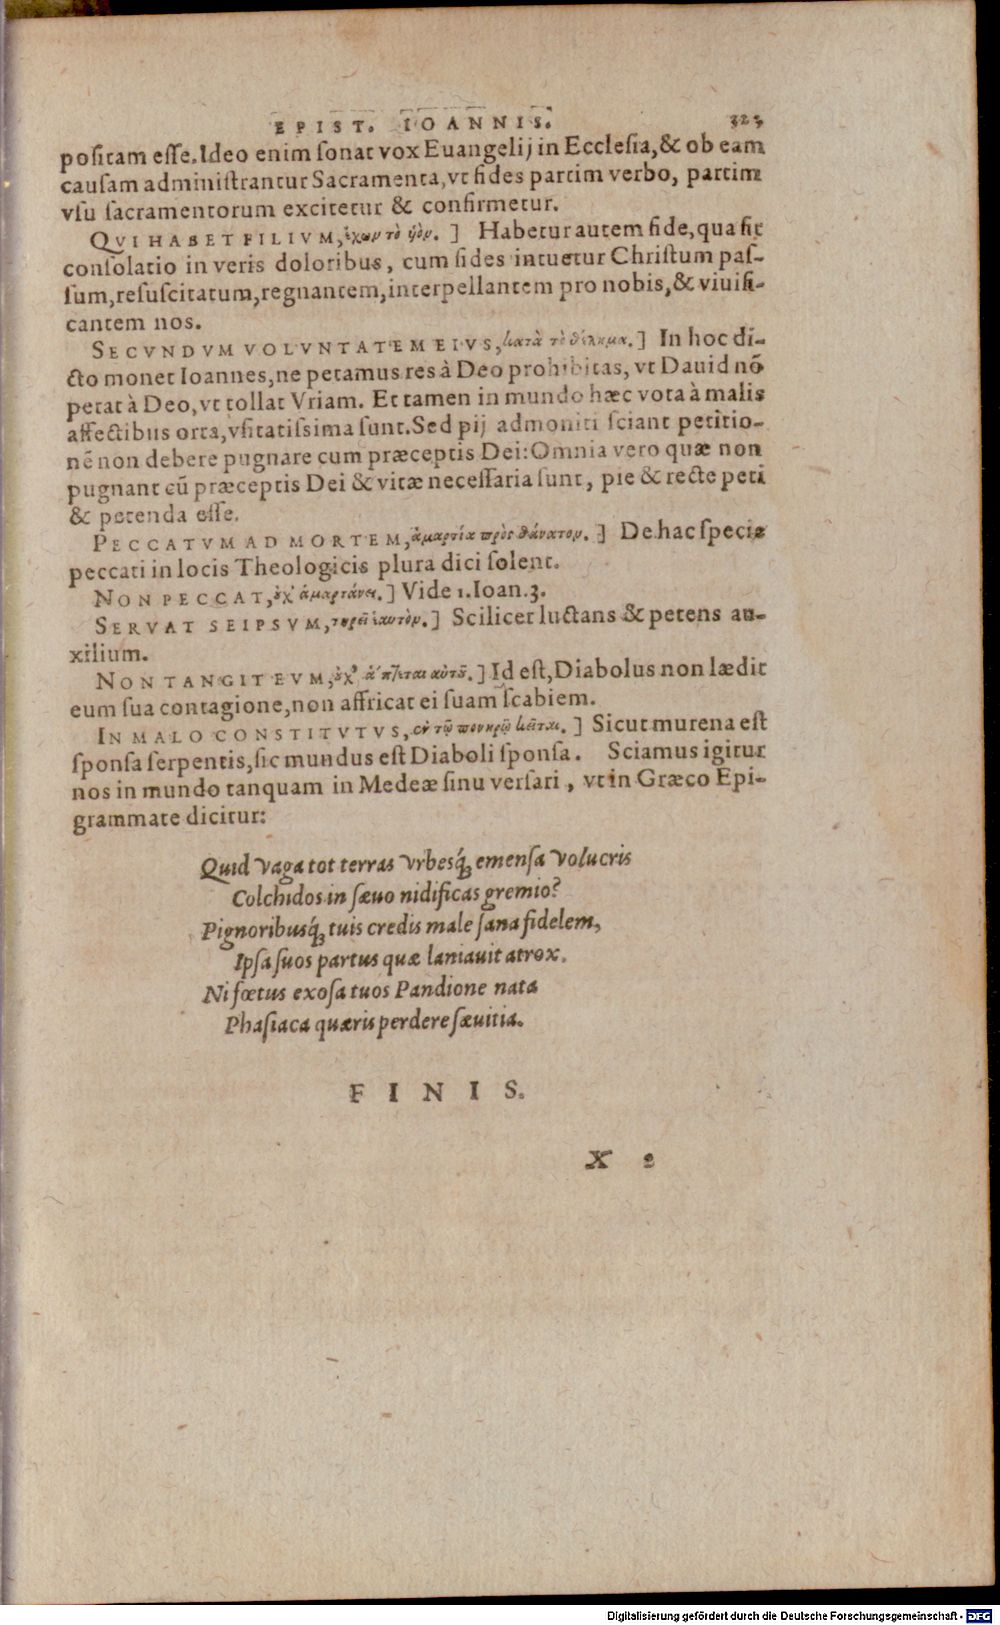 EPIST. IOANNIS. 325
positam esse. Ideo enim sonat vox Euangelij in Ecclesia, & ob eam
causam administrantur Sacramenta, vt fides partim verbo, partim
vsu sacramentorum excitetur & confirmetur.
QVI HABET FILIVM, ἔχων τὸ ὑόν. ] Habetur autem fide, qua fit
consolatio in veris doloribus, cum fides intuetur Christum pas-
sum, resuscitatum, regnantem, interpellantem pro nobis, & viuifi-
cantem nos.
SECVNDVM VOLVNTATEM EIVS, κατὰ τὸ θέλημα. ] In hoc di-
cto monet Ioannes, ne petamus res à Deo prohibitas, vt Dauid nō
petat à Deo, vt tollat Vriam. Et tamen in mundo hæc vota à malis
affectibus orta, vsitatissima sunt. Sed pij admoniti sciant petitio-
nē non debere pugnare cum præceptis Dei: Omnia vero quæ non
pugnant cū præceptis Dei & vitæ necessaria sunt, pie & recte peti
& petenda esse.
PECCATVM AD MORTEM, ἁμαρτία πρὸς θάνατον. ] De hac specie
peccati in locis Theologicis plura dici solent.
NON PECCAT, οὐχ ἁμαρτάνει. ] Vide 1. Ioan. 3.
SERVAT SEIPSVM, τηρεῖ ἑαυτὸν. ] Scilicet luctans & petens au-
xilium.
NON TANGIT EVM, οὐχ ἅπτεται αὐτοῦ. ] Id est, Diabolus non lædit
eum sua contagione, non affricat ei suam scabiem.
IN MALO CONSTITVTVS, ἐν τῷ πονηρῷ κεῖται. ] Sicut murena est
sponsa serpentis, sic mundus est Diaboli sponsa. Sciamus igitur
nos in mundo tanquam in Medeæ sinu versari, vt in Græco Epi-
grammate dicitur:
Quid vaga tot terras vrbesq́; emensa volucris
Colchidos in sæuo nidificas gremio?
Pignoribusq́; tuis credis male sana fidelem,
Ipsa suos partus quæ laniauit atrox.
Ni fœtus exosa tuos Pandione nata
Phasiaca quæris perdere sæuitia.
FINIS.
X 2
Digitalisierung gefördert durch die Deutsche Forschungsgemeinschaft - DFG